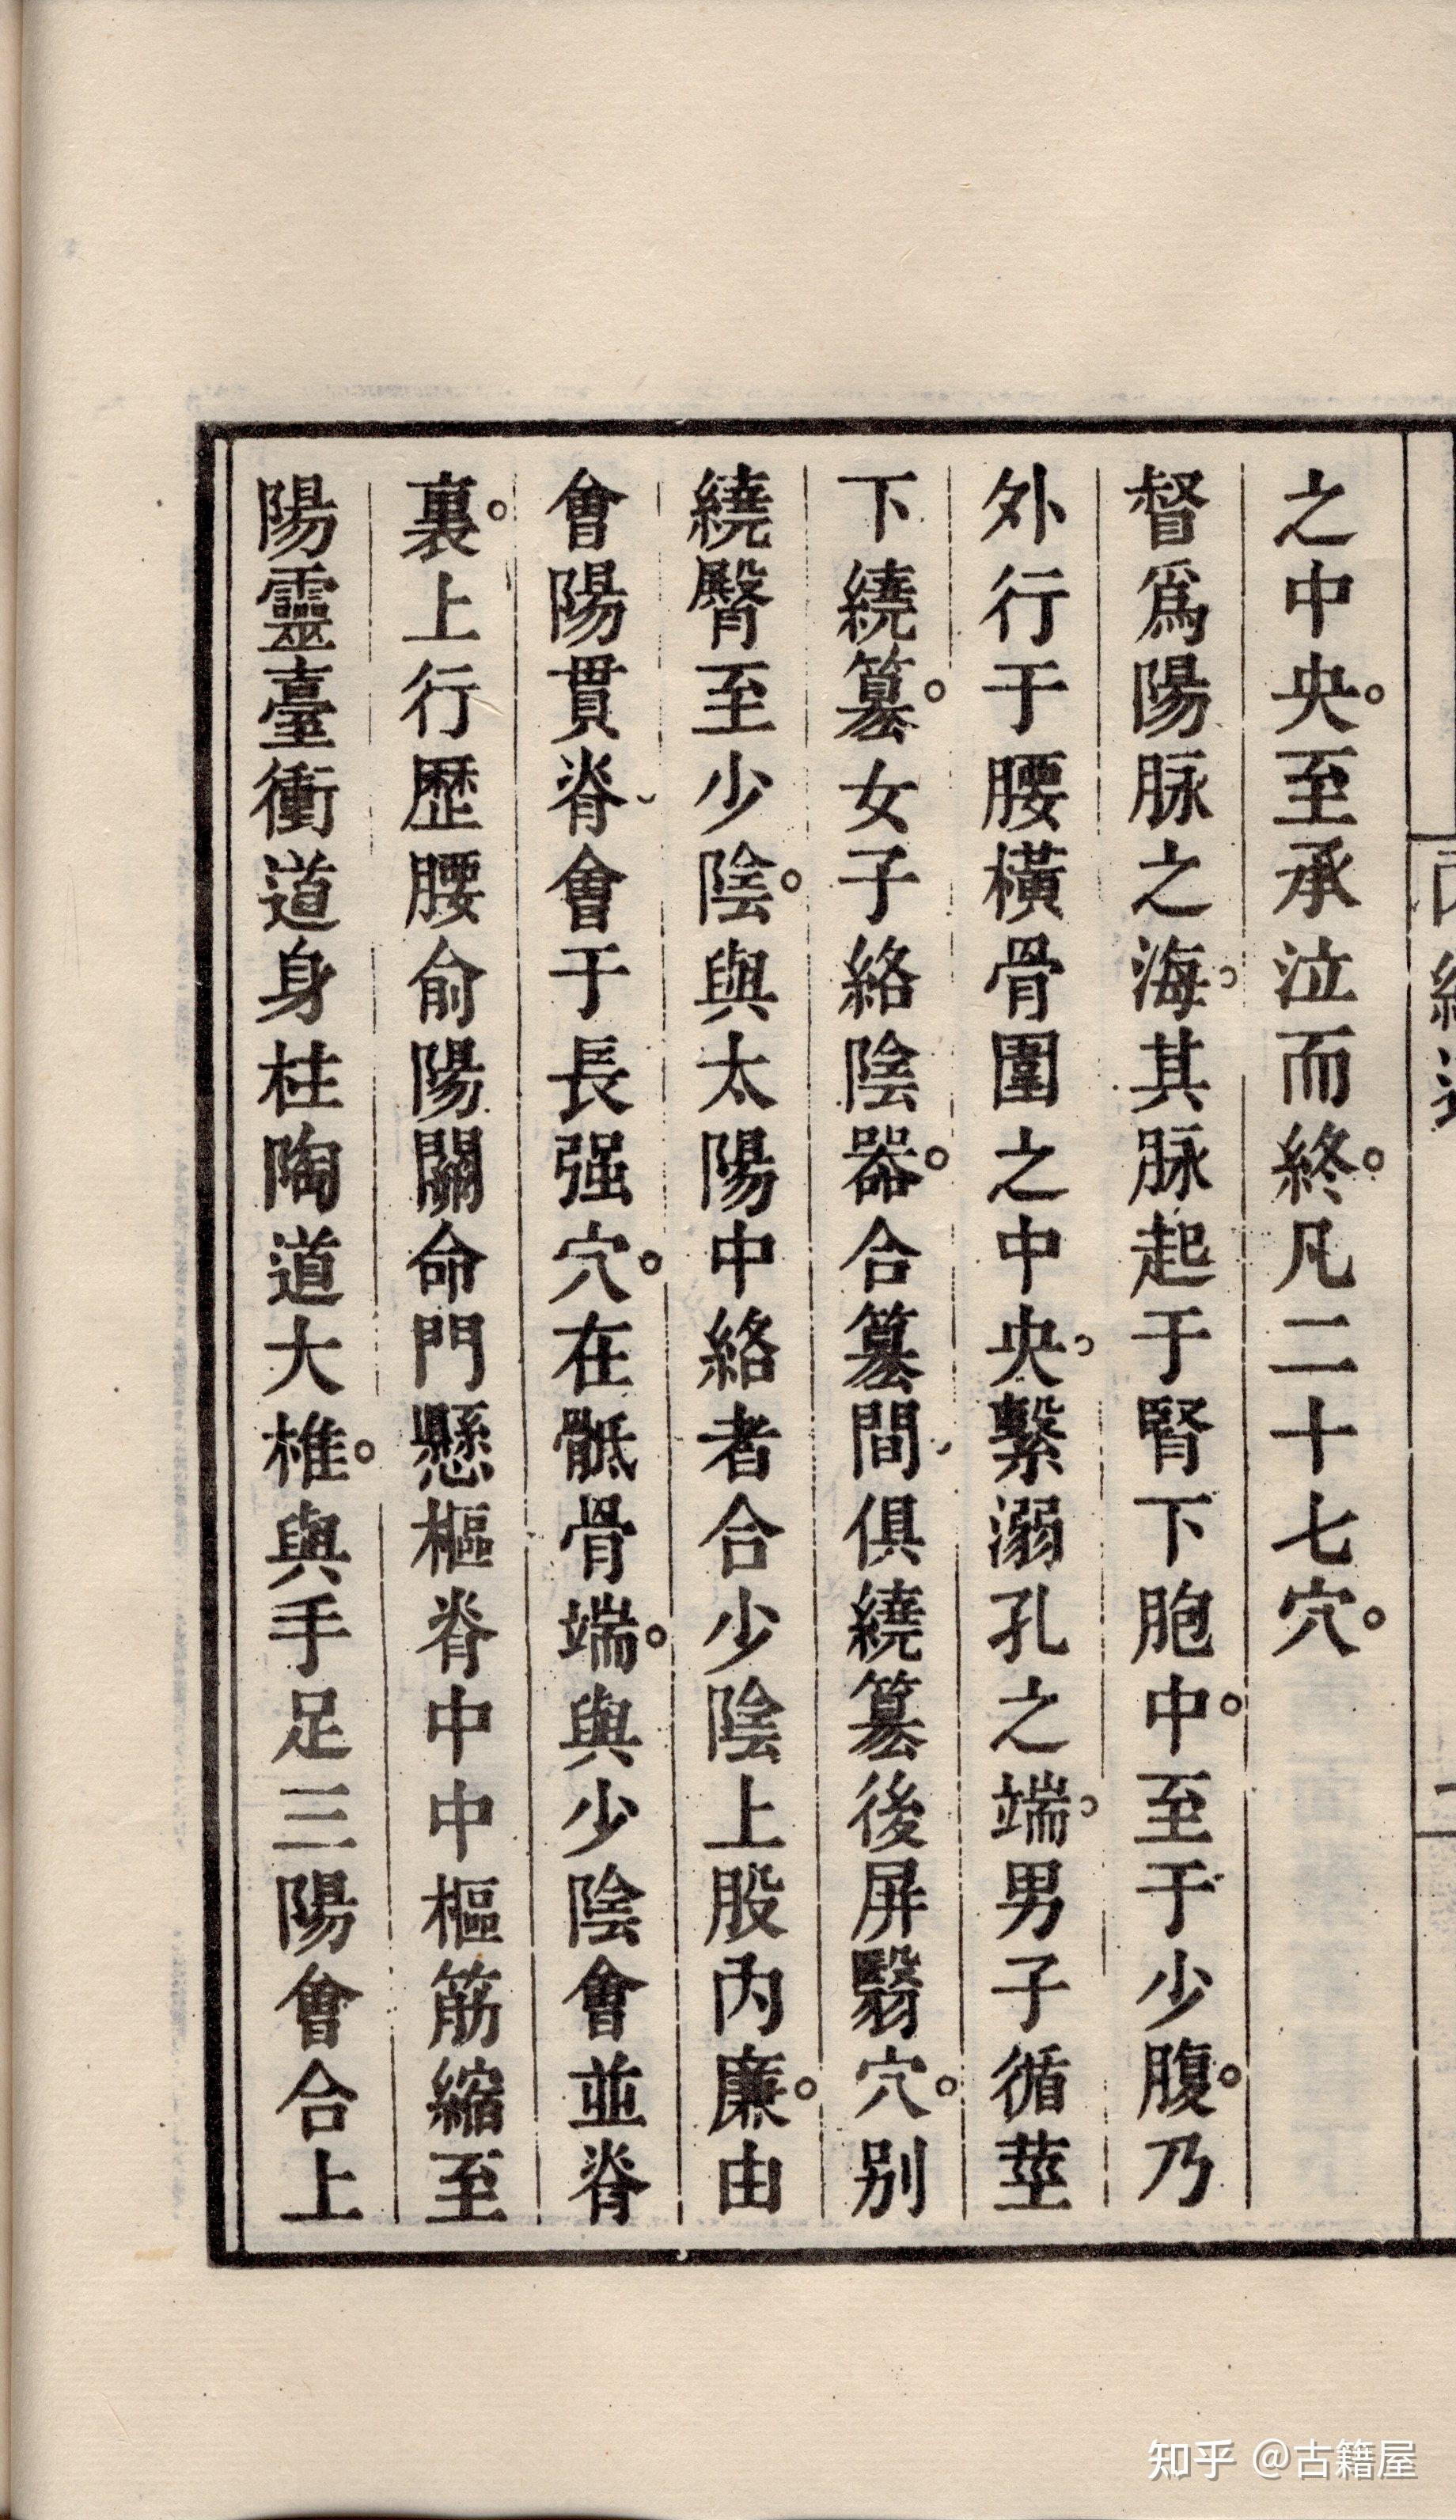 之中央。至承泣而終。凡二十七穴。
督爲陽脉之海。其脉起于腎下胞中。至于少腹。乃
外行于腰橫骨圍之中央。繫溺孔之端。男子循莖
下繞篡。女子絡陰器。合篡間、俱繞篡後屏翳穴。别
繞臀至少陰。與太陽中絡者合少陰上股內廉。由
會陽貫脊、會于長强穴。在骶骨端。與少陰會並脊
裏。上行歷腰俞陽關命門懸樞脊中中樞筋縮至
陽靈臺衝道身柱陶道大椎。與手足三陽會合上
知乎 @古籍屋